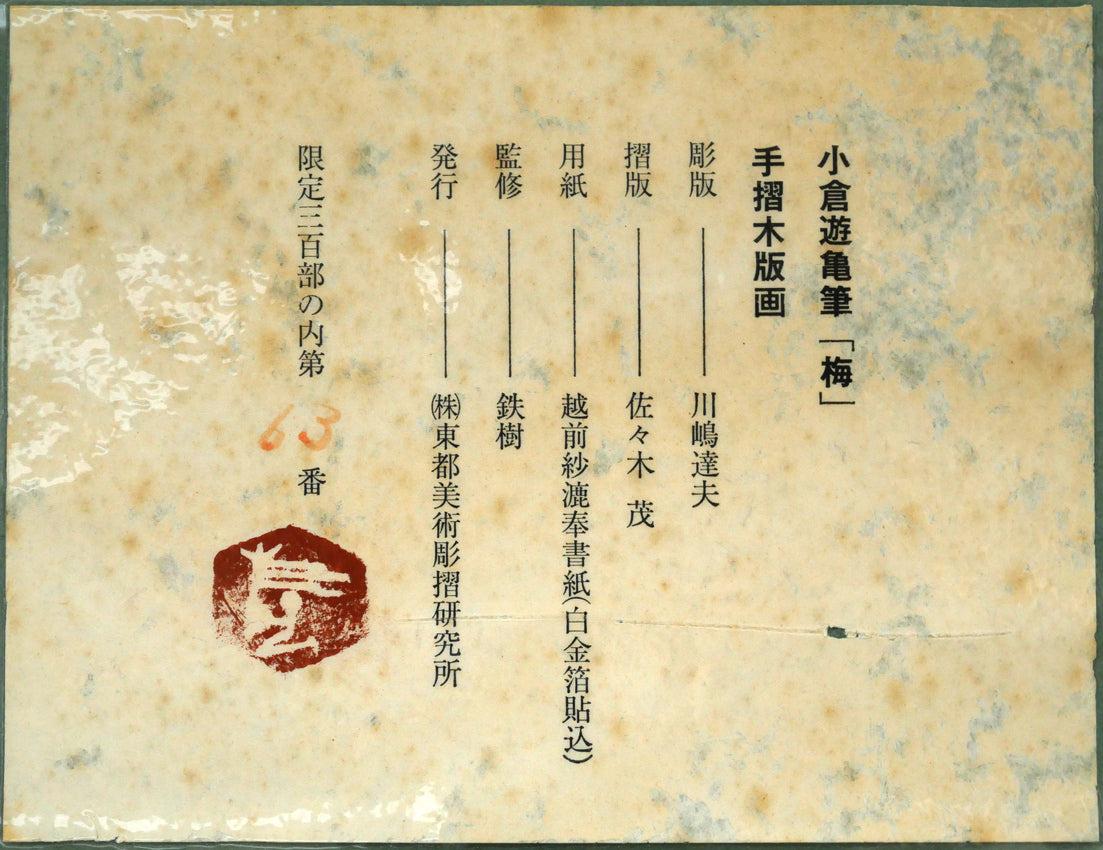 小倉遊亀筆「梅」
手摺木版画
彫版――――川嶋達夫
摺版――――佐々木 茂
用紙――――越前紗漉奉書紙(白金箔貼込)
監修――――鉄樹
発行――――㈱東都美術彫摺研究所
限定三百部の内第 63 番